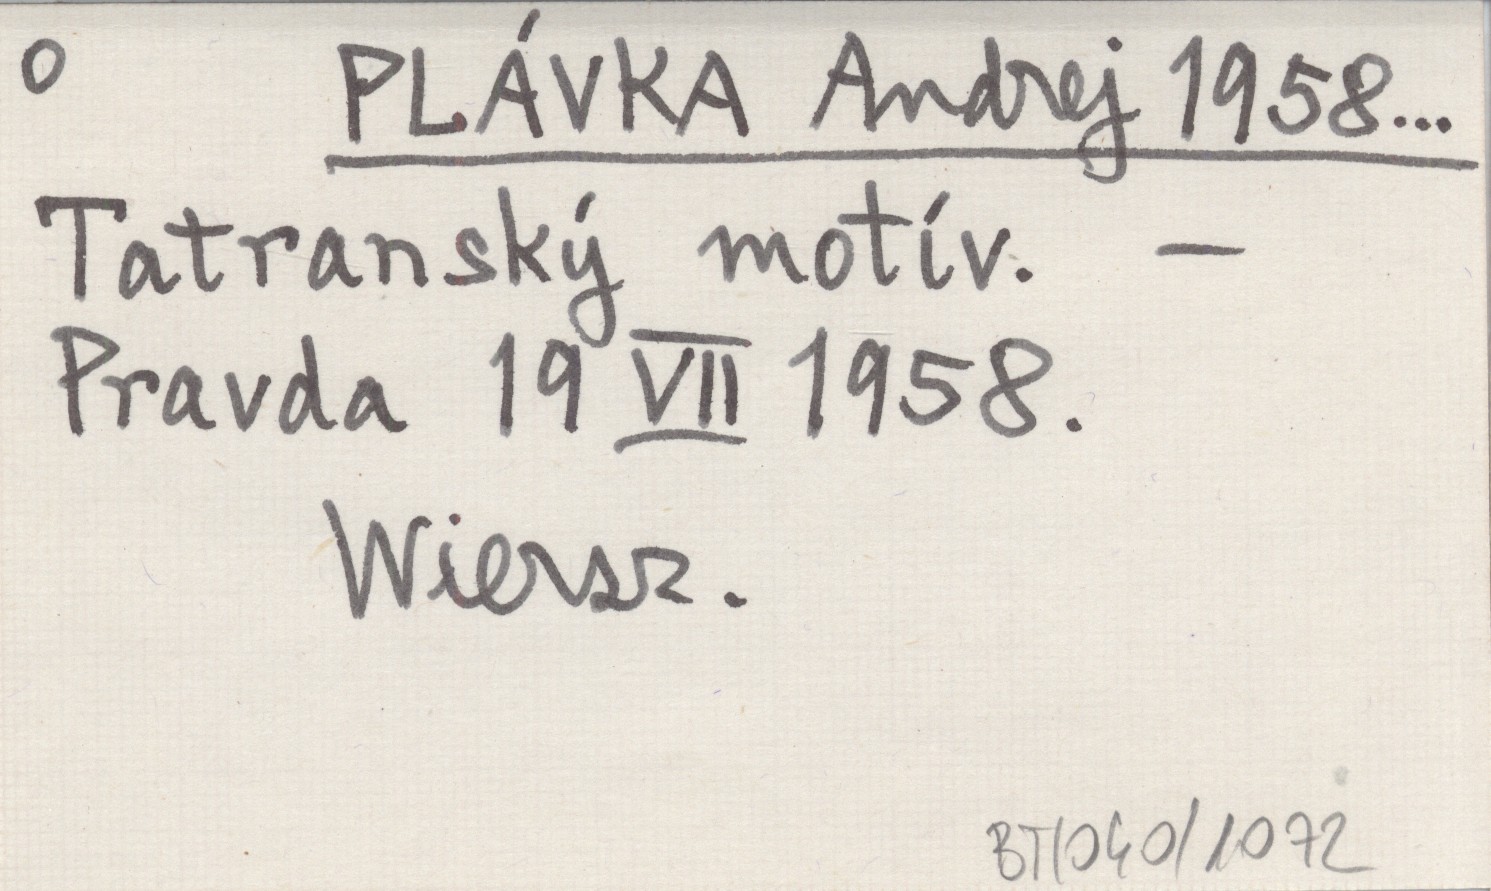 o PLÁVKA Andrej 1958...
Tatranský motív. —
Pravda 19 VII 1958.
Wiersz.
BT/040/1072